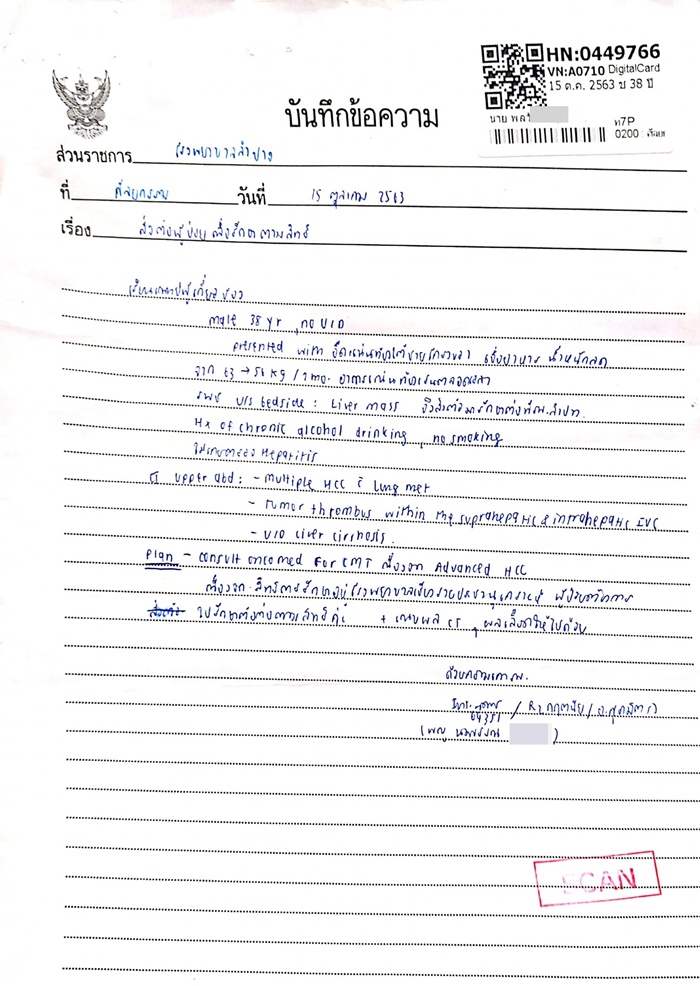 HN:0449766
VN:A0710 DigitalCard
15 ต.ค. 2563 ช 38 ปี
นาย พล
ท7P
0200
บันทึกข้อความ
ส่วนราชการ โรงพยาบาลลำปาง
ที่ ศัลยกรรม วันที่ 15 ตุลาคม 2563
เรื่อง ส่งต่อผู้ป่วยเพื่อรักษาตามสิทธิ์
เรียนแพทย์ผู้เกี่ยวข้อง
male 38 yr, no U/D
presented with อืดแน่นท้องใต้ชายโครงขวา เบื่ออาหาร น้ำหนักลด
จาก 63 → 56 kg / 1 mo. อาการแน่นท้องเป็นตลอดเวลา
รพช U/S bedside : Liver mass จึงส่งตัวมารักษาต่อที่รพ.ลำปาง
Hx of chronic alcohol drinking, no smoking
ไม่เคยตรวจ Hepatitis
CT upper abd : - multiple HCC c̄ lung met
- Tumor thrombus within the suprahepatic & intrahepatic IVC
- U/D liver cirrhosis.
Plan - consult oncomed for CMT เนื่องจาก Advanced HCC
เนื่องจาก สิทธิการรักษาอยู่โรงพยาบาลเชียงรายประชานุเคราะห์ ผู้ป่วยต้องการ
ไปรักษาต่อตามสิทธิ์ + แนบผล CT, ผลเลือดให้ไปด้วย
ด้วยความเคารพ.
64351
(พญ )
SCAN